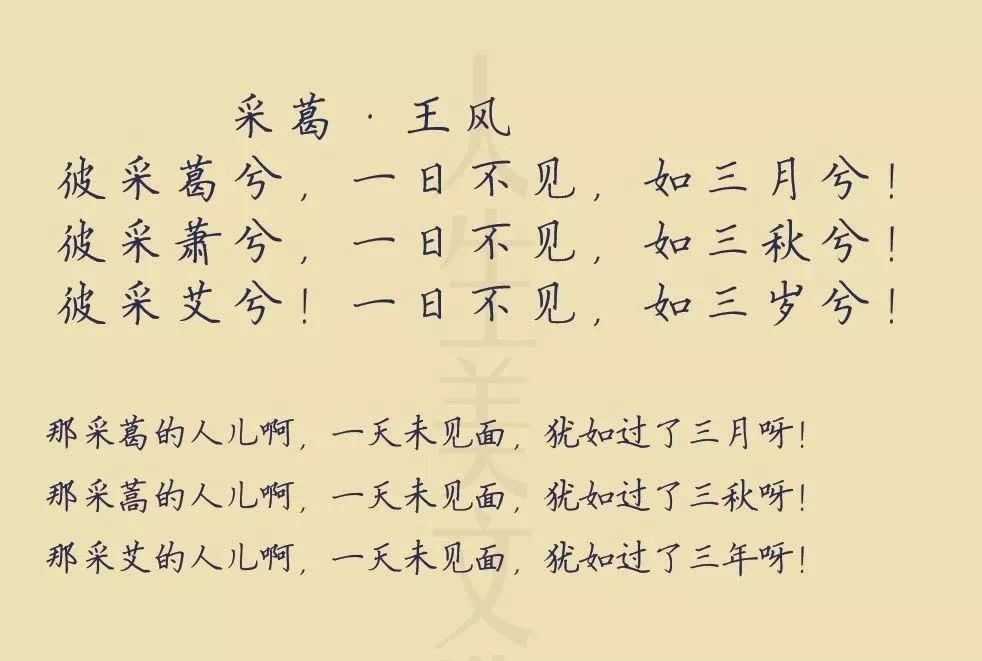 采葛·王风
彼采葛兮，一日不见，如三月兮！
彼采萧兮，一日不见，如三秋兮！
彼采艾兮！一日不见，如三岁兮！
那采葛的人儿啊，一天未见面，犹如过了三月呀！
那采蒿的人儿啊，一天未见面，犹如过了三秋呀！
那采艾的人儿啊，一天未见面，犹如过了三年呀！
人生美文